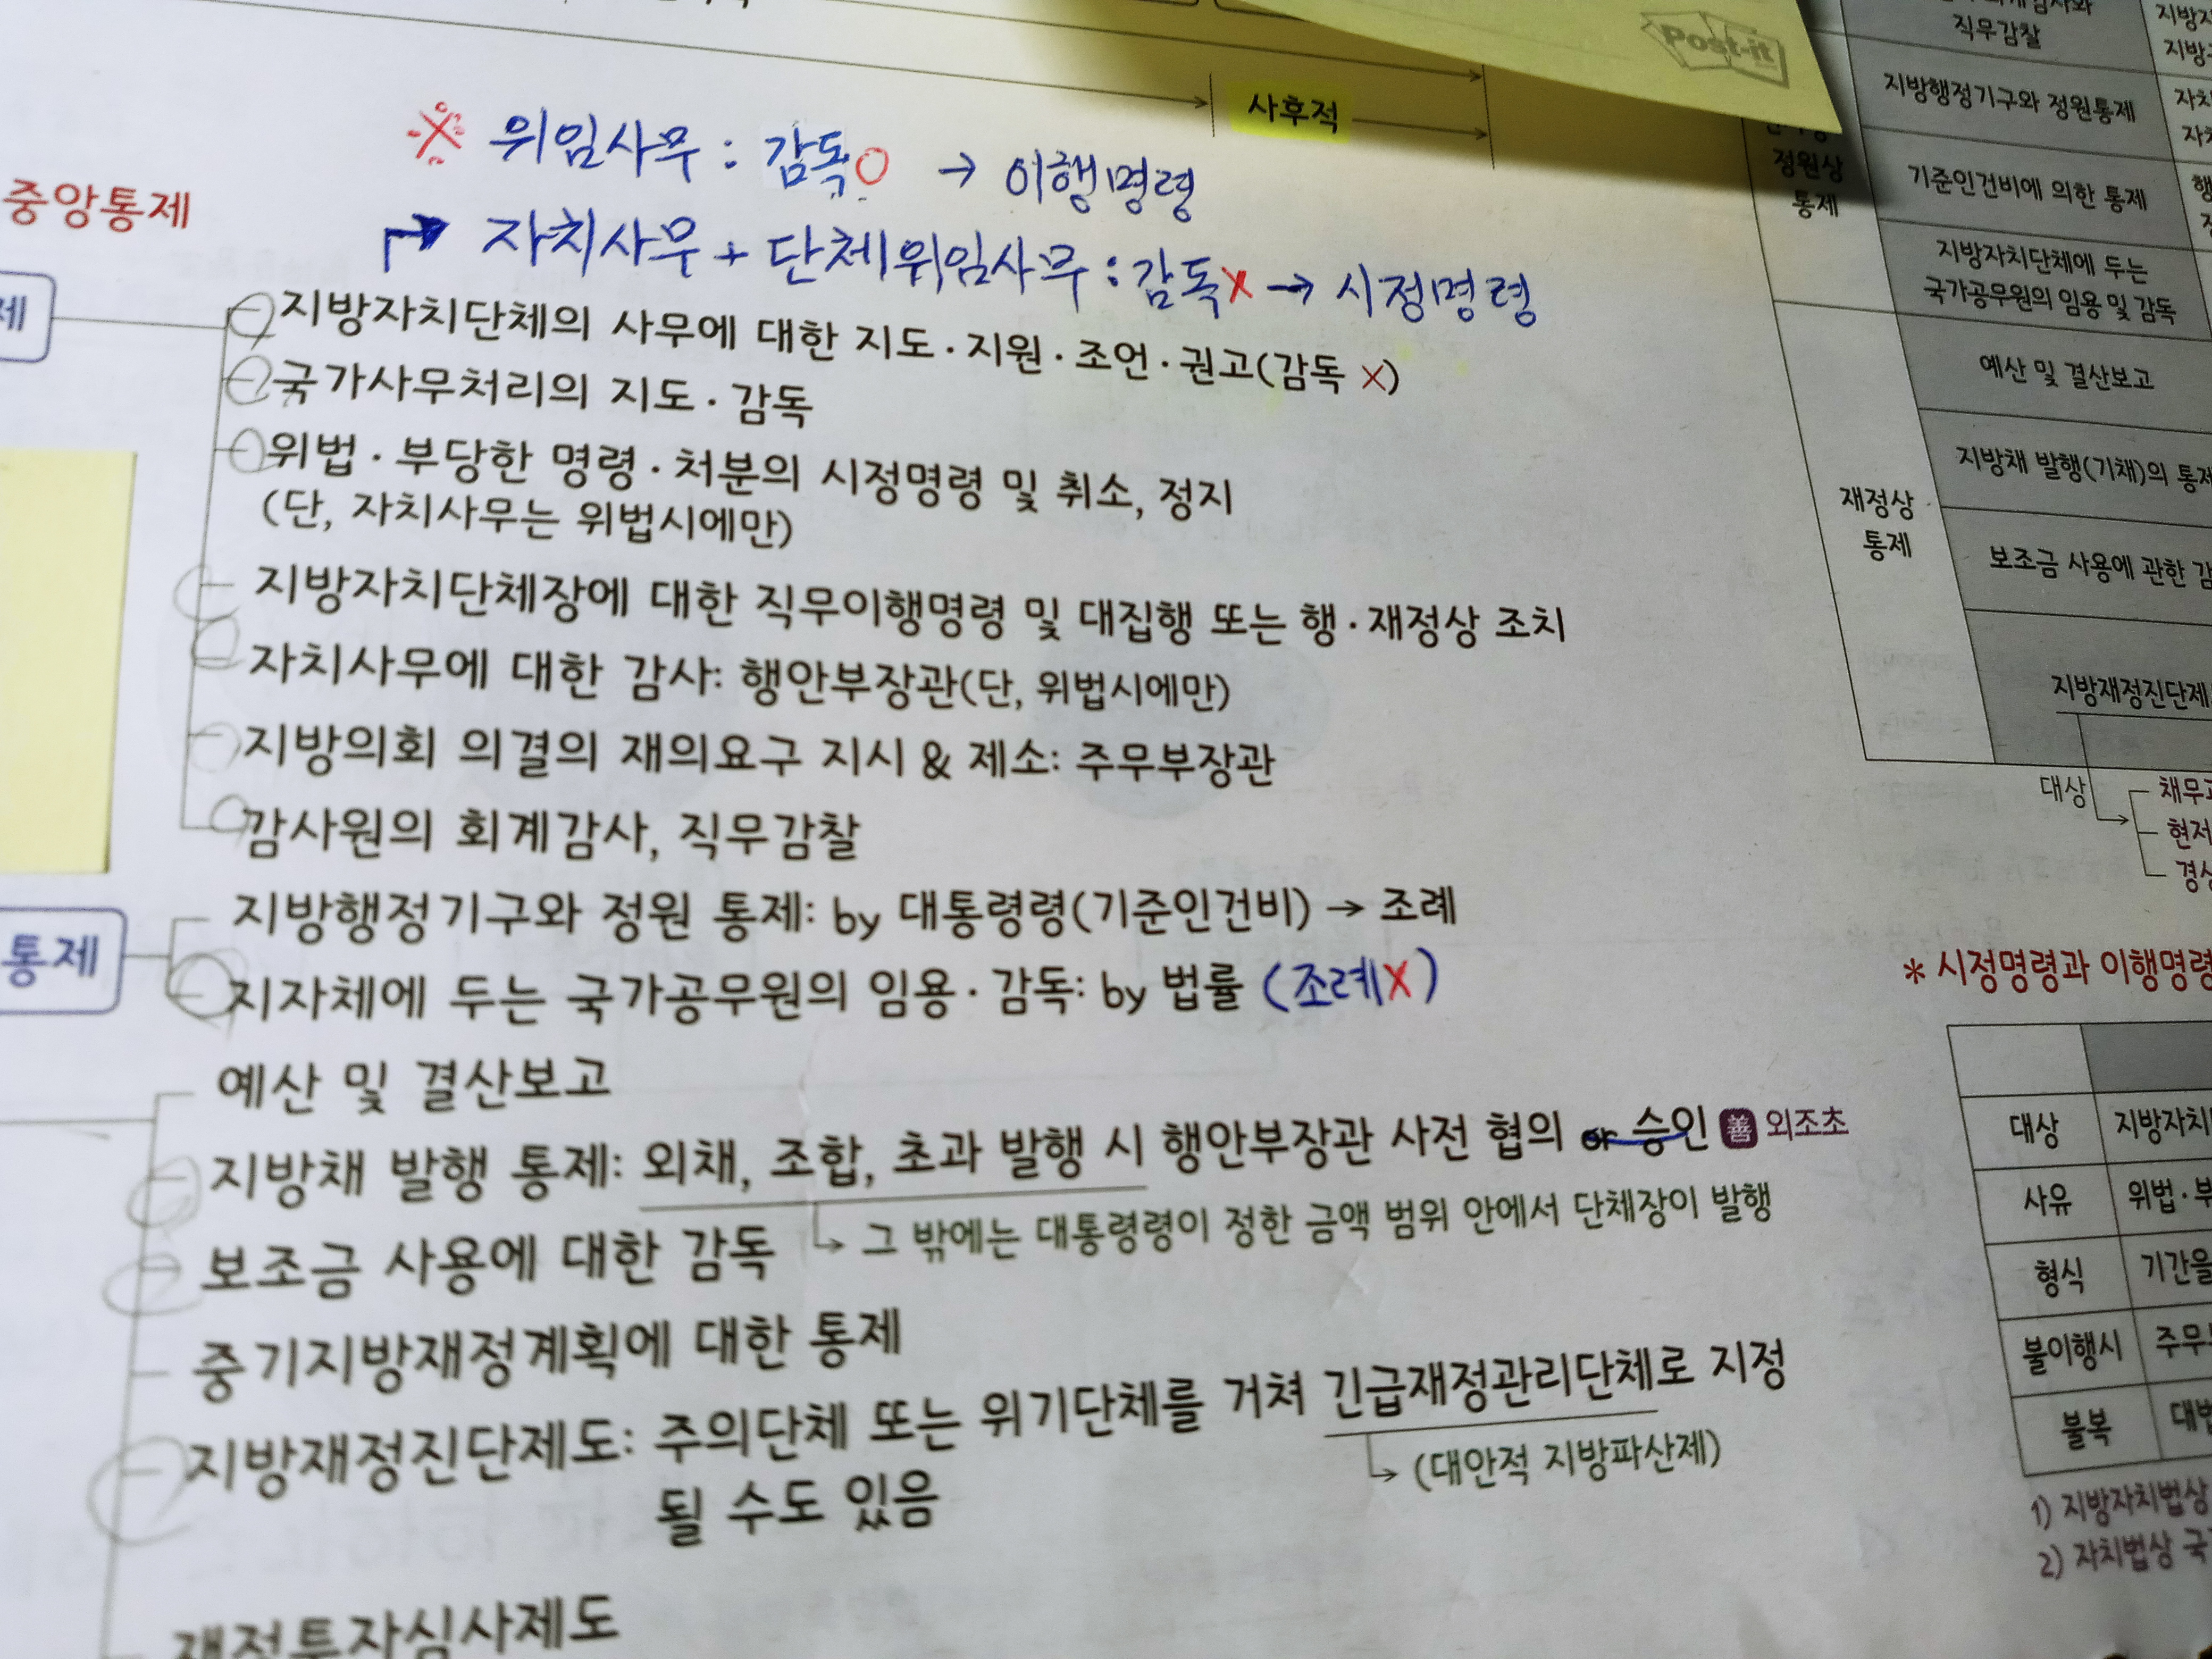 Post-it
사후적
※ 위임사무 : 감독○ → 이행명령
중앙통제
자치사무 + 단체위임사무 : 감독x → 시정명령
제
지방자치단체의 사무에 대한 지도·지원·조언·권고(감독 ×)
국가사무처리의 지도·감독
위법·부당한 명령·처분의 시정명령 및 취소, 정지
(단, 자치사무는 위법시에만)
지방자치단체장에 대한 직무이행명령 및 대집행 또는 행·재정상 조치
자치사무에 대한 감사: 행안부장관(단, 위법시에만)
지방의회 의결의 재의요구 지시 & 제소: 주무부장관
감사원의 회계감사, 직무감찰
통제
지방행정기구와 정원 통제: by 대통령령(기준인건비) → 조례
지자체에 두는 국가공무원의 임용·감독: by 법률 (조례X)
예산 및 결산보고
지방채 발행 통제: 외채, 조합, 초과 발행 시 행안부장관 사전 협의 or 승인 善 외조초
그 밖에는 대통령령이 정한 금액 범위 안에서 단체장이 발행
보조금 사용에 대한 감독
중기지방재정계획에 대한 통제
지방재정진단제도: 주의단체 또는 위기단체를 거쳐 긴급재정관리단체로 지정
될 수도 있음
(대안적 지방파산제)
재정투자심사제도
직무감찰
지방행정기구와 정원통제
정원상
통제
기준인건비에 의한 통제
지방자치단체에 두는
국가공무원의 임용 및 감독
재정상
통제
예산 및 결산보고
지방채 발행(기채)의 통제
보조금 사용에 관한
지방재정진단제
대상
채무
현저
경상
* 시정명령과 이행명령
대상 지방자치
사유 위법·부
형식 기간을
불이행시 주무
불복 대법
1) 지방자치법상
2) 자치법상 국